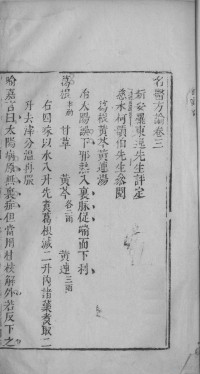 名醫方論卷三
新安羅東逸先生評定
慈水柯韻伯先生叅閱
葛根黃芩黃連湯
治太陽誤下邪熱入裏脈促喘而下利
葛根 半斤 甘草 黃芩 各二兩 黃連 三兩
右四味以水八升先煮葛根減二升內諸藥煮取二
升去滓分溫再服
喻嘉言曰太陽病原無裏症但當用桂枝解外若反下之